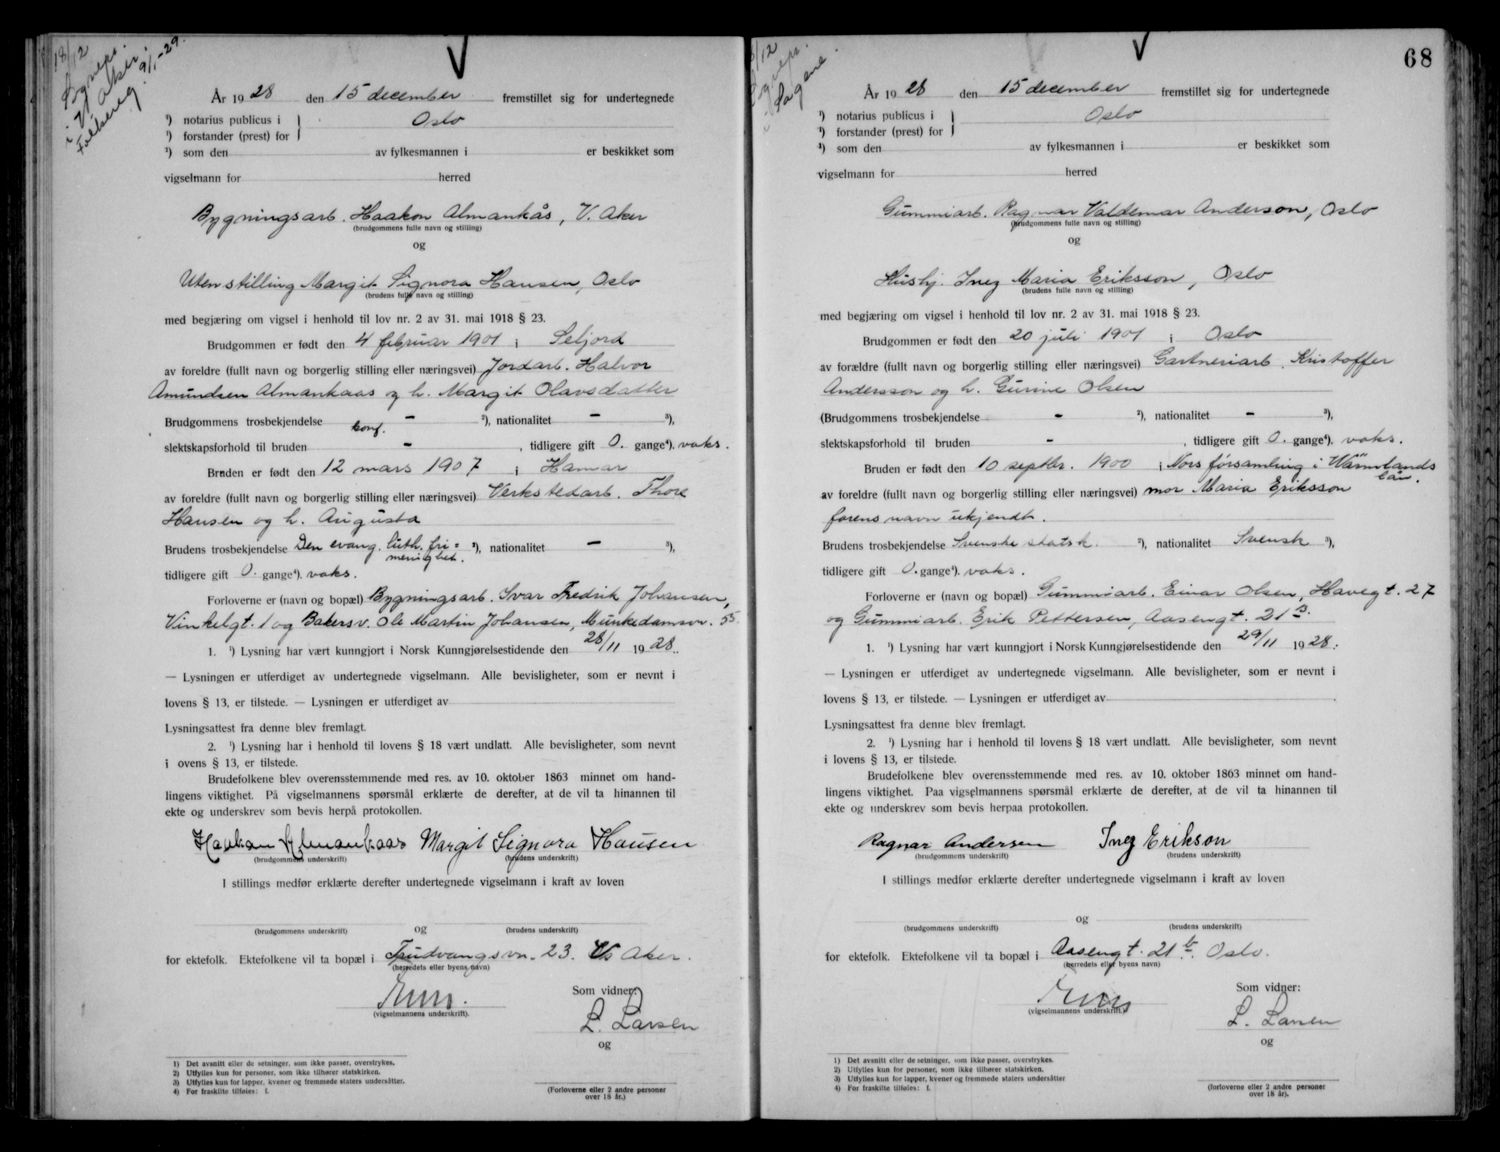 18/12
Bgveps.
i V. Aker.
Folkereg. 9/1-29.
År 1928 den 15 december fremstillet sig for undertegnede
¹) notarius publicus i } Oslo
¹) forstander (prest) for }
¹) som den av fylkesmannen i er beskikket som
vigselmann for herred
Bygningsarb. Haakon Almankås, V. Aker
(brudgommens fulle navn og stilling)
og
Uten stilling Margit Signora Hansen, Oslo
(brudens fulle navn og stilling)
med begjæring om vigsel i henhold til lov nr. 2 av 31. mai 1918 § 23.
Brudgommen er født den 4 februar 1901 i Seljord
av foreldre (fullt navn og borgerlig stilling eller næringsvei) Jordarb. Halvor
Amundsen Almankaas og h. Margit Olavsdatter
Brudgommens trosbekjendelse - ²), nationalitet - ³),
konf.
slektskapsforhold til bruden - , tidligere gift 0. gange⁴). vaks.
Bruden er født den 12 mars 1907 i Hamar
av foreldre (fullt navn og borgerlig stilling eller næringsvei) Verkstedarb. Thore
Hansen og h. Augusta
Brudens trosbekjendelse Den evang. luth. fri= ²), nationalitet - ³),
menighet.
tidligere gift 0. gange⁴). vaks.
Forloverne er (navn og bopæl) Bygningsarb. Ivar Fredrik Johansen,
Vinkelgt. 1 og Bakersv. Ole Martin Johansen, Munkedamsv. 55
1. ¹) Lysning har vært kunngjort i Norsk Kunngjørelsestidende den 28/11 1928.
— Lysningen er utferdiget av undertegnede vigselmann. Alle bevisligheter, som er nevnt i
lovens § 13, er tilstede. — Lysningen er utferdiget av
Lysningsattest fra denne blev fremlagt.
2. ¹) Lysning har i henhold til lovens § 18 vært undlatt. Alle bevisligheter, som nevnt
i ovens § 13, er tilstede.
Brudefolkene blev overensstemmende med res. av 10. oktober 1863 minnet om hand-
lingens viktighet. På vigselmannens spørsmål erklærte de derefter, at de vil ta hinannen til
ekte og underskrev som bevis herpå protokollen.
Haakon Almankaas Margit Signora Hansen
(brudgommens underskrift) (brudens underskrift)
I stillings medfør erklærte derefter undertegnede vigselmann i kraft av loven
og
(brudgommens underskrift) (brudens underskrift)
for ektefolk. Ektefolkene vil ta bopæl i Trudvangsvn. 23. V Aker.
(herredets eller byens navn)
Som vidner:
(vigselmannens underskrift).
L. Larsen
og
1) Det avsnitt eller de setninger, som ikke passer, overstrykes.
2) Utfylles kun for personer, som ikke tilhører statskirken.
3) Utfylles kun for lapper, kvener og fremmede staters undersåtter.
4) For fraskilte tilføies: f.
(Forloverne eller 2 andre personer
over 18 år.)
68
/12
Sagene
År 1928 den 15 december fremstillet sig for undertegnede
¹) notarius publicus i } Oslo
¹) forstander (prest) for }
¹) som den av fylkesmannen i er beskikket som
vigselmann for herred
Gummiarb. Ragnar Valdemar Anderson, Oslo
(brudgommens fulle navn og stilling)
og
Hushj. Inez Maria Eriksson, Oslo
(brudens fulle navn og stilling)
med begjæring om vigsel i henhold til lov nr. 2 av 31. mai 1918 § 23.
Brudgommen er født den 20 juli 1901 i Oslo
av forældre (fullt navn og borgerlig stilling eller næringsvei) Gartneriarb. Kristoffer
Andersson og h. Gurine Olsen
(Brudgommens trosbekjendelse - ²), nationalitet - ³),
slektskapsforhold til bruden - , tidligere gift 0. gange⁴). vaks.
Bruden er født den 10 septbr. 1900 i Nors församling i Wärmlands
län.
av foreldre (fullt navn og borgerlig stilling eller næringsvei) mor Maria Eriksson
farens navn ukjendt.
Brudens trosbekjendelse Svenske statsk. ²), nationalitet Svensk ³),
tidligere gift 0. gange⁴). vaks.
Forloverne er (navn og bopæl) Gummiarb. Einar Olsen, Havegt. 27
og Gummiarb. Erik Pettersen, Aasengt. 21
1. ¹) Lysning har vært kunngjort i Norsk Kunngjørelsestidende den 29/11 1928.
— Lysningen er utferdiget av undertegnede vigselmann. Alle bevisligheter, som er nevnt i
lovens § 13, er tilstede. — Lysningen er utferdiget av
Lysningsattest fra denne blev fremlagt.
2. ¹) Lysning har i henhold til lovens § 18 vært undlatt. Alle bevisligheter, som nevnt
i lovens § 13, er tilstede.
Brudefolkene blev overensstemmende med res. av 10. oktober 1863 minnet om hand-
lingens viktighet. Paa vigselmannens spørsmål erklærte de derefter, at de vil ta hinannen til
ekte og underskrev som bevis herpaa protokollen.
Ragnar Andersen Inez Erikson
(brudgommens underskrift) (brudens underskrift)
I stillings medfør erklærte derefter undertegnede vigselmann i kraft av loven
og
(brudgommens underskrift) (brudens underskrift)
for ektefolk. Ektefolkene vil ta bopæl i Aasengt. 21 b. Oslo.
(herredets eller byens navn)
Som vidner:
(vigselmannens underskrift.)
L. Larsen
og
1) Det avsnitt eller de setninger, som ikke passer, overstrykes.
2) Utfylles kun for personer, som ikke tilhører statskirken.
3) Utfylles kun for lapper, kvener og fremmede staters undersåtter
4) For fraskilte tilføies: f.
(forloverne eller 2 andre personer
over 18 år).